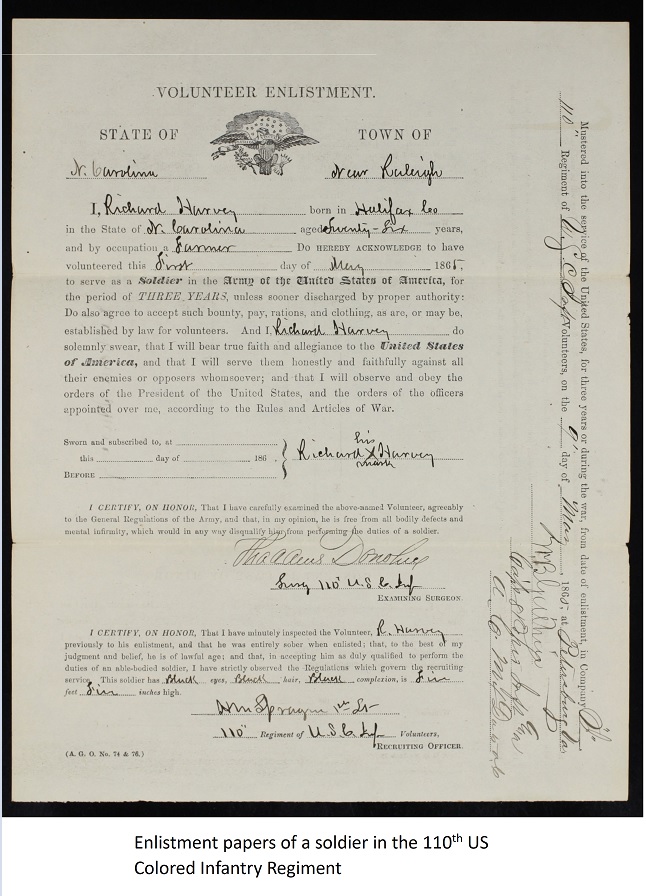 VOLUNTEER ENLISTMENT.
STATE OF TOWN OF
N. Carolina Near Raleigh
I, Richard Harvey born in Halifax Co
in the State of N. Carolina aged Twenty-Six years,
and by occupation a Farmer Do HEREBY ACKNOWLEDGE to have
volunteered this First day of May 1865,
to serve as a Soldier in the Army of the United States of America, for
the period of THREE YEARS, unless sooner discharged by proper authority:
Do also agree to accept such bounty, pay, rations, and clothing, as are, or may be,
established by law for volunteers. And I, Richard Harvey do
solemnly swear, that I will bear true faith and allegiance to the United States
of America, and that I will serve them honestly and faithfully against all
their enemies or opposers whomsoever; and that I will observe and obey the
orders of the President of the United States, and the orders of the officers
appointed over me, according to the Rules and Articles of War.
Sworn and subscribed to, at
this day of 186
BEFORE
his
Richard X Harvey
mark
I CERTIFY, ON HONOR, That I have carefully examined the above-named Volunteer, agreeably
to the General Regulations of the Army, and that, in my opinion, he is free from all bodily defects and
mental infirmity, which would in any way disqualify him from performing the duties of a soldier.
Thaddeus Donohue
Surg 110" U.S.C. Inf
EXAMINING SURGEON.
I CERTIFY, ON HONOR, That I have minutely inspected the Volunteer, R. Harvey
previously to his enlistment, and that he was entirely sober when enlisted; that, to the best of my
judgment and belief, he is of lawful age; and that, in accepting him as duly qualified to perform the
duties of an able-bodied soldier, I have strictly observed the Regulations which govern the recruiting
service. This soldier has Black eyes, Black hair, Black complexion, is Five
feet Five inches high.
Wm Sprague 1st Lt
110" Regiment of U.S.C. Inf Volunteers,
RECRUITING OFFICER.
(A. G. O. No. 74 & 76.)
Mustered into the service of the United States, for three years or during the war, from date of enlistment, in Company
110" Regiment of U.S.C. Inf Volunteers, on the day of May, 1865, at
Enlistment papers of a soldier in the 110th US
Colored Infantry Regiment